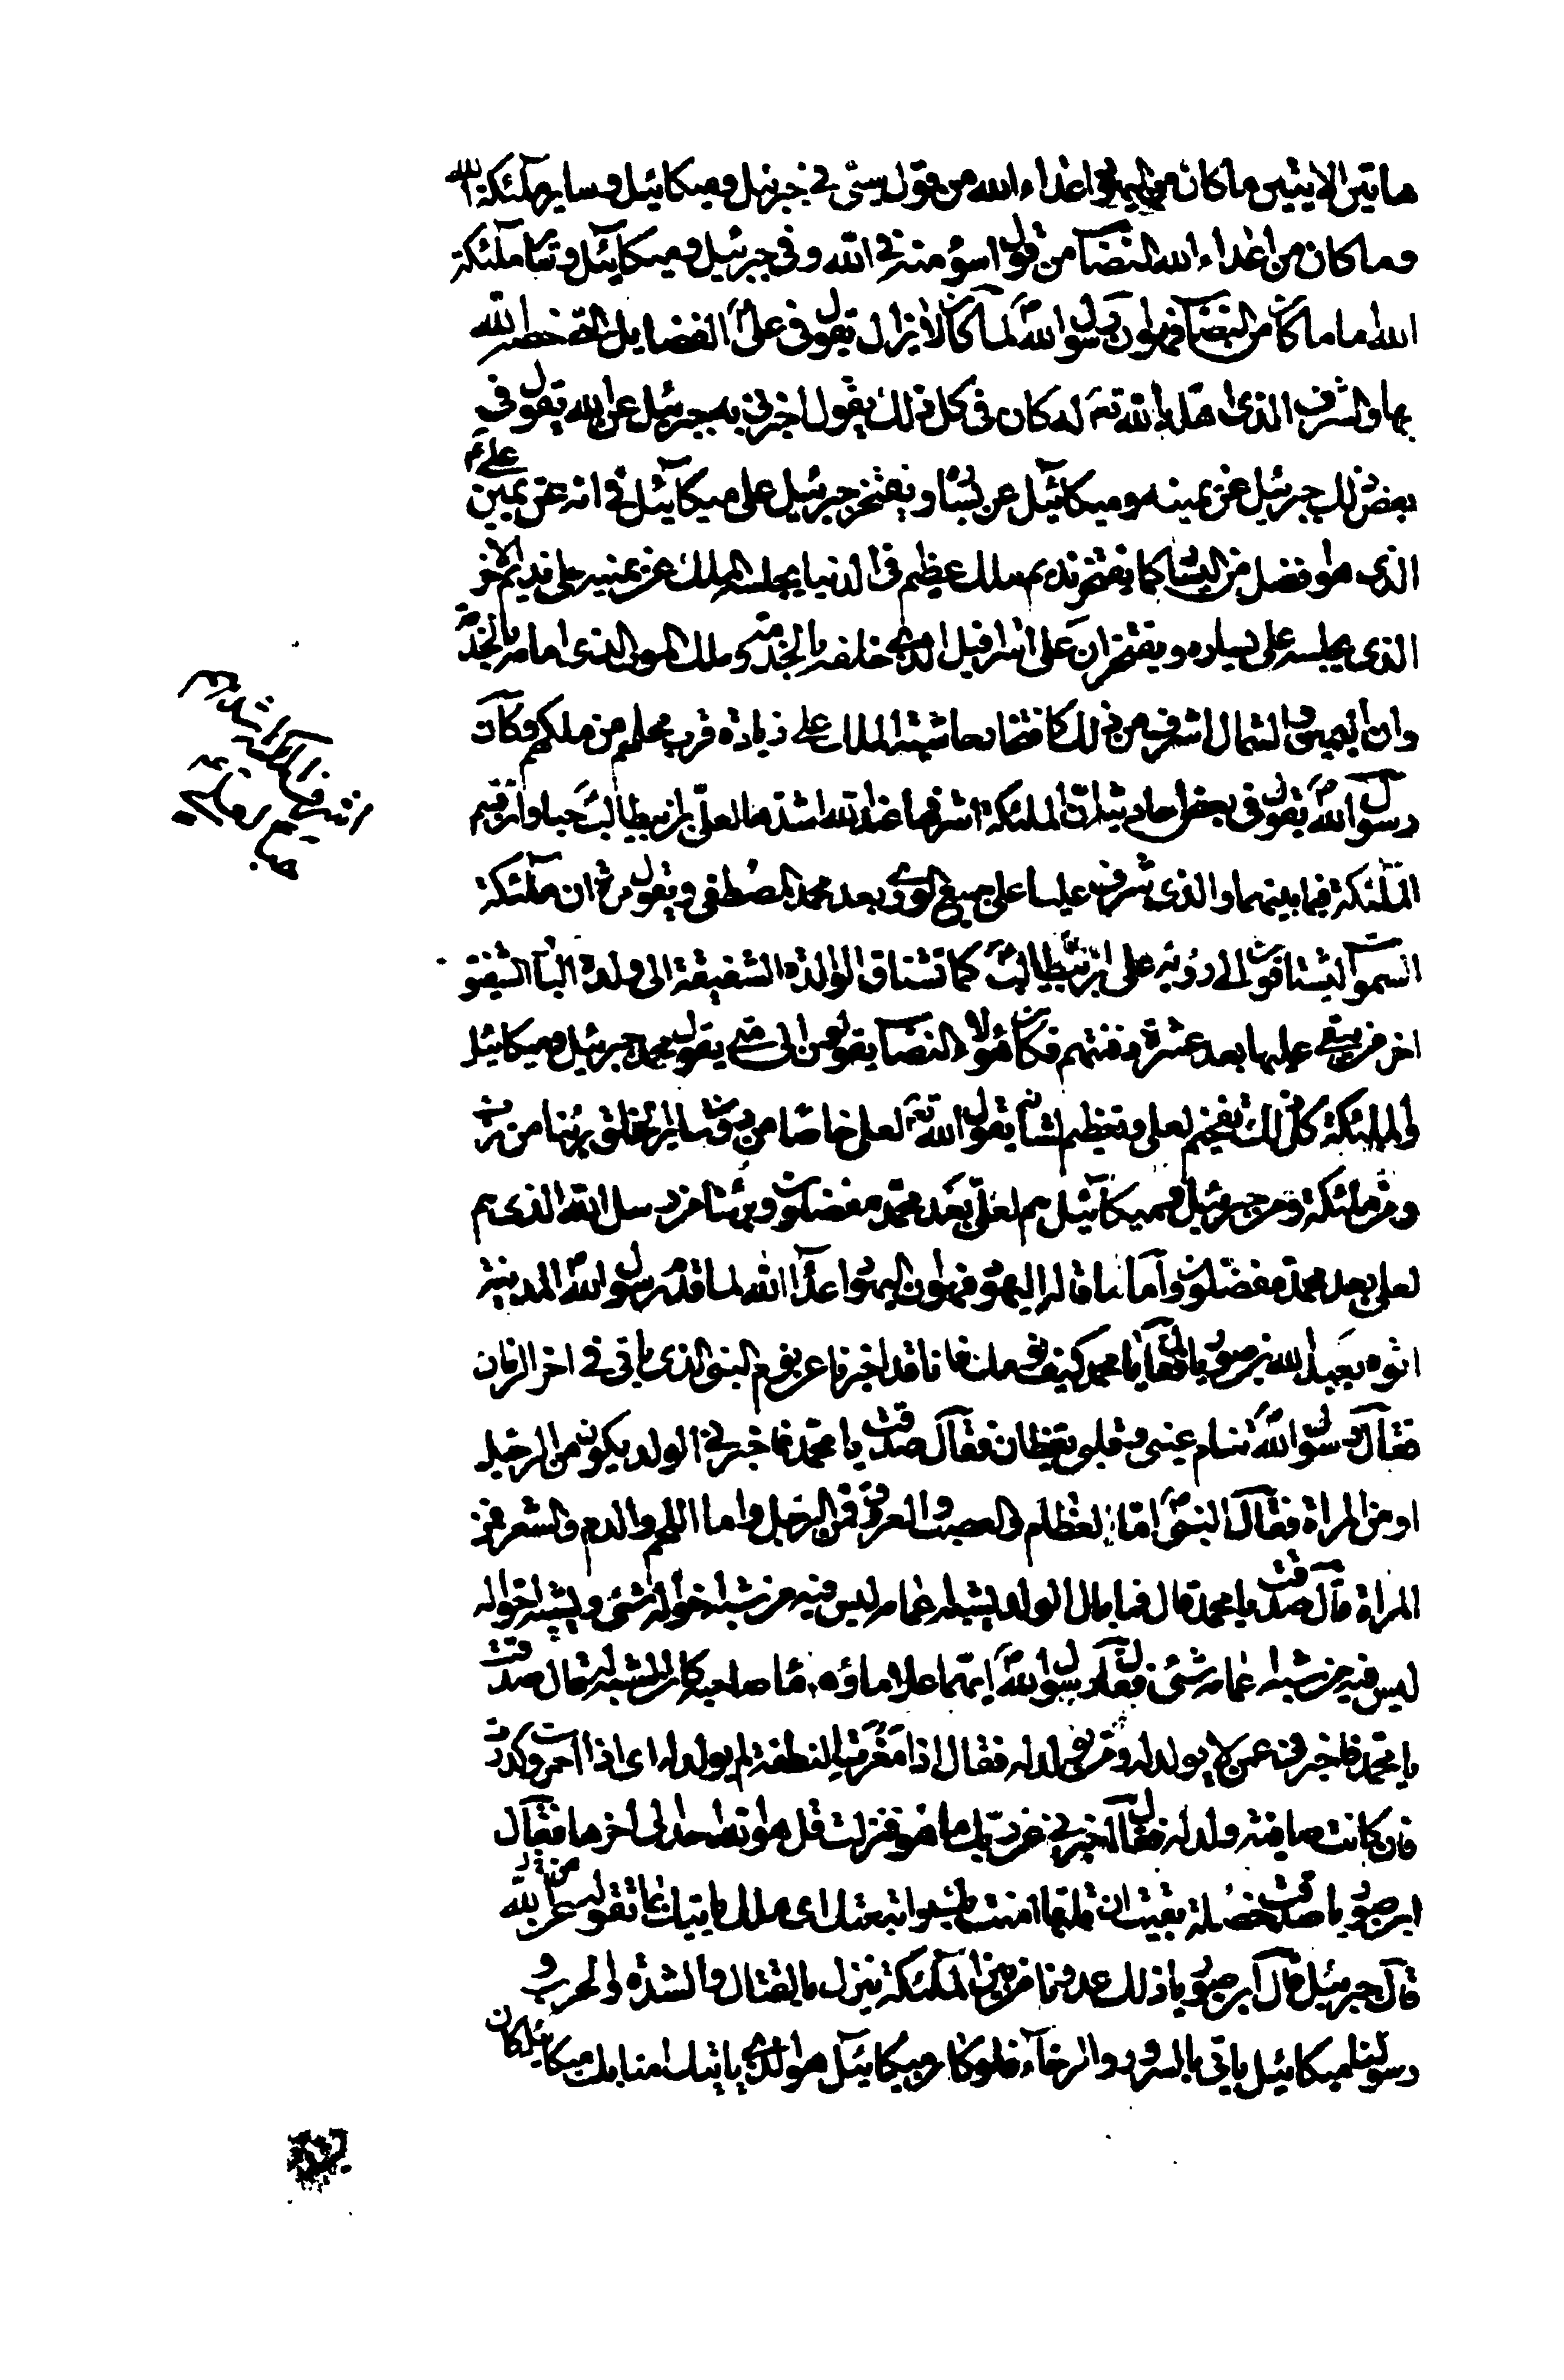 هاتين الايتين ما كان من اليهود اعداء الله من قول سيئ في جبرئيل وميكائيل وساير ملئكة الله
وما كان من اعداء الله النصاب من قول اسوء منه في الله وفي جبرئيل وميكائيل وساير ملئكة
الله اما ما كان من النصاب فهو ان رسول الله ص لما كان لا يزال يقول في علي ع الفضايل التي خصه الله
بها والشرف الذي اهله الله تعم له كان في كل ذلك يقول اخبرني به جبرئيل عن الله يقول في
بعض ذلك جبرئيل عن يمينه وميكائيل عن يساره ويفتخر جبرئيل على ميكائيل في انه عن يمين علي ع
الذي هو افضل من اليسار كما يفتخر نديم ملك عظيم في الدنيا يجلسه الملك عن يمينه على نديم الاخر
الذي يجلسه على يساره ويفتخران على اسرافيل الذي خلفه بالخدمة وملك الموت الذي امامه بالخدمة
وان اليمين والشمال اشرف من ذلك كافتخار حاشية الملك على زيادة قرب محلهم من ملكهم وكان
رسول الله ص يقول في بعض احاديثه ان الملئكة اشرفها عند الله اشدها لعلي بن ابيطالب ع حبا وان قسم
الملئكة فيما بينهما والذي شرف عليا على جميع الورى بعد محمد المصطفى ويقول مرة ان ملئكة
السموات ليشتاقون الى رؤية علي ابن ابيطالب ع كما تشتاق الوالدة الشفيقة الى ولدها البار الشفيق
اخر من بقي عليها بعد عشرة دفنتهم فكان هؤلاء النصاب يقولون الى متى يقول محمد جبرئيل وميكائيل
والملئكة كل ذلك تفخيم لعلي وتعظيم لشانه يقول الله تعم لعلي خاصا من دون ساير الخلق برئنا من رب
ومن ملئكة ومن جبرئيل وميكائيل هم لعلي بعد محمد مفضلون وبرئنا من رسل الله الذي هم
لعلي بعد محمد مفضلون واما ما قاله اليهود فهو ان اليهود اعداء الله لما قدم رسول الله ص المدينة
اتوه بعبد الله بن صوريا فقال يا محمد كيف نومك فانا قد اخبرنا عن نوم النبي الذي ياتي في اخر الزمان
فقال رسول الله ص تنام عيني وقلبي يقظان فقال صدقت يا محمد فاخبرني الولد يكون من الرجل
او من المراة فقال النبي ص اما العظام والعصب والعروق فمن الرجل واما اللحم والدم والشعر فمن
المراة قال صدقت يا محمد قال فما بال الولد يشبه اعمامه ليس فيه من شبه اخواله شيء ويشبه اخواله
ليس فيه من شبه اعمامه شيء فقال رسول الله ص ايهما علا ماؤه ماء صاحبه كان الشبه له قال صدقت
يا محمد فاخبرني عمن لا يولد له ومن يولد له فقال اذا مغرت النطفة لم يولد له اي اذا احمرت وكدرت
فان كانت صافية ولد له فقال اخبرني عن ربك ما هو فنزلت قل هو الله احد الى اخرها فقال
ابن صوريا صدقت خصلة بقيت ان قلتها امنت بك واتبعتك اي ملك ياتيك بما تقوله عن الله
قال جبرئيل قال ابن صوريا ذلك عدونا من بين الملئكة ينزل بالقتال والشدة والحرب و
رسولنا ميكائيل ياتي بالسرور والرخاء فلو كان ميكائيل هو الذي ياتيك امنا بك ميكائيل كان